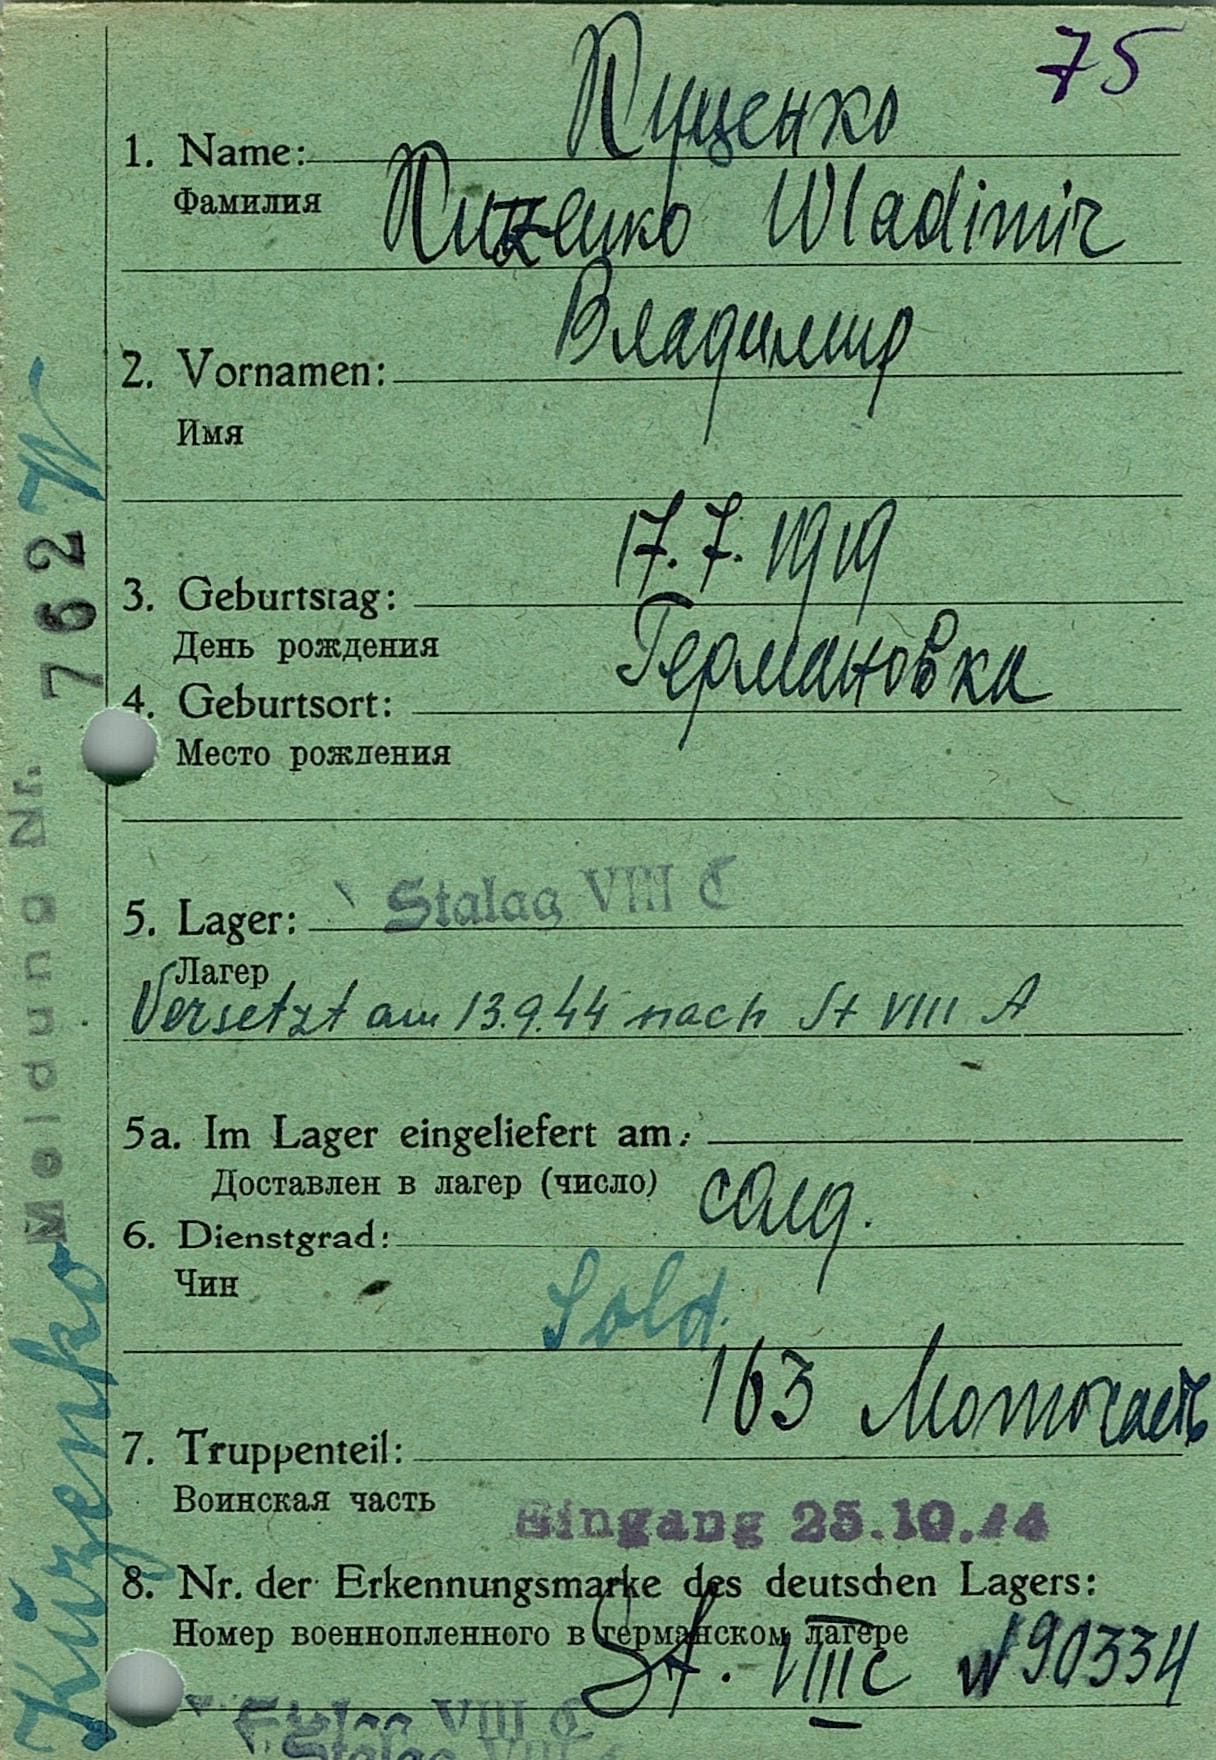 75
Куценко
1. Name:
Фамилия
Куценко Wladimir
Владимир
2. Vornamen:
Имя
17.7.1919
3. Geburtstag:
День рождения
Германовка
4. Geburtsort:
Место рождения
Stalag VIII C
5. Lager:
Лагер
Versetzt am 13.9.44 nach St VIII A
5a. Im Lager eingeliefert am:
Доставлен в лагер (число)
солд.
6. Dienstgrad:
Чин
Sold.
163 Моточасть
7. Truppenteil:
Воинская часть
Eingang 25.10.44
8. Nr. der Erkennungsmarke des deutschen Lagers:
Номер военнопленного в германском лагере
St. VIIIc № 90334
Stalag VIII C
Stalag VIII
Meldung Nr. 762
Kuzenko W